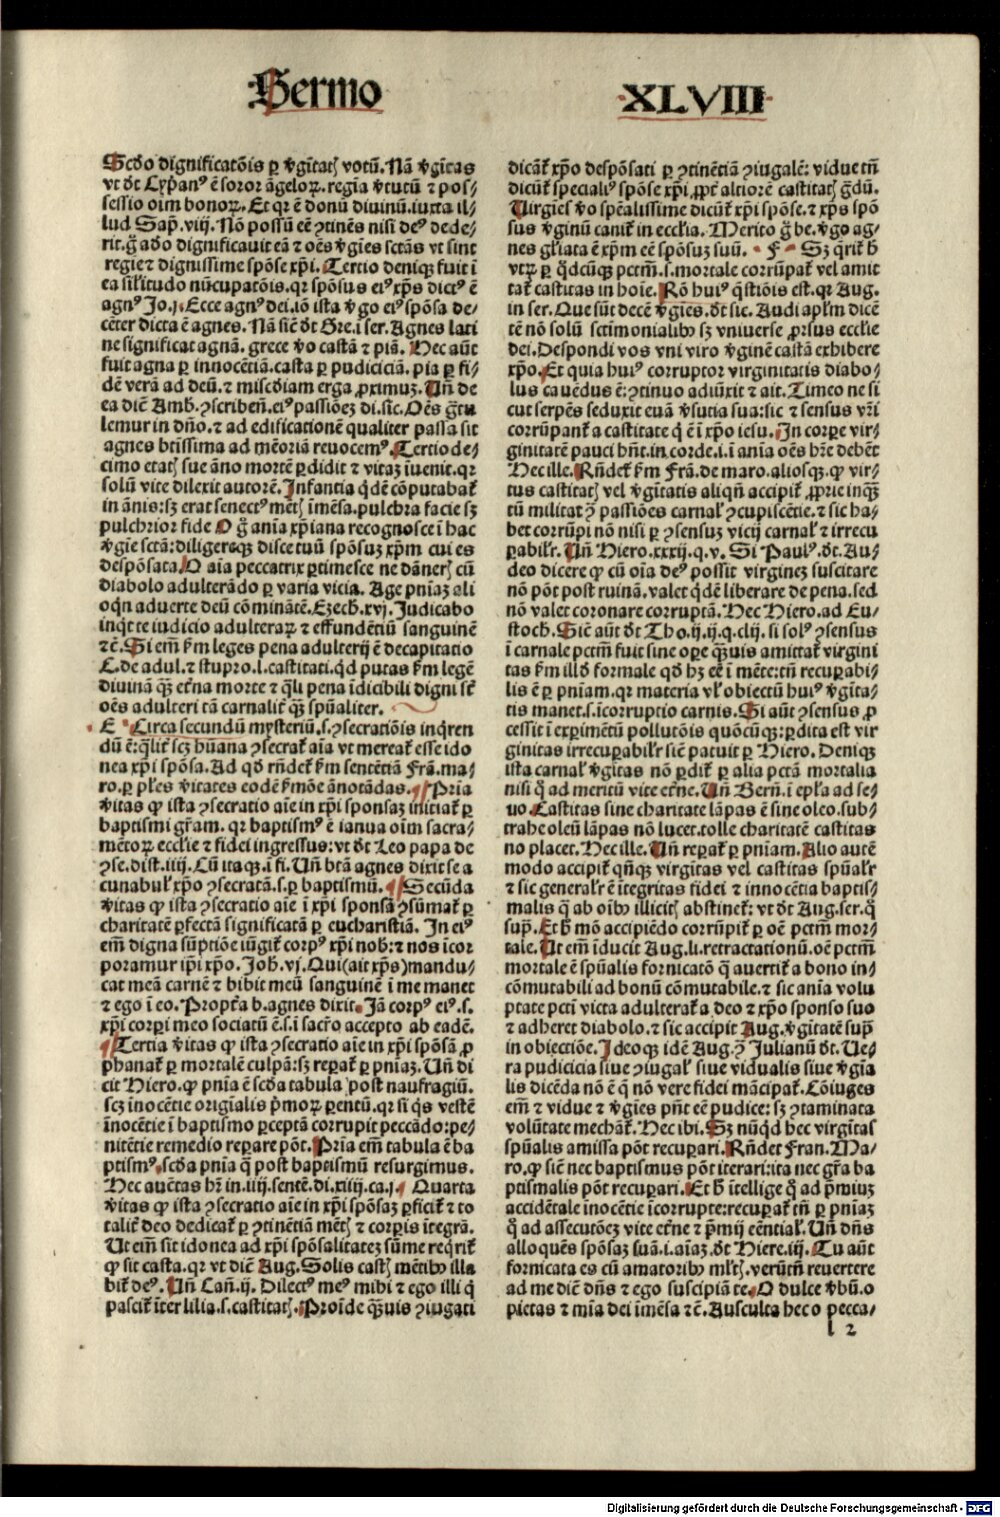 Sermo XLVIII
Scḋo dignificatōis ꝑ v̓gītatꝭ votū. Nā v̓gītas
vt dt Cyp̄an⁹ ē soror āgeloꝝ. regīa v̓tutū ⁊ pos/
sessio oīm bonoꝝ. Et qꝛ ē donū diuinū. iuxta il/
lud Sap̄. viij. Nō possū eē ꝯtinēs nisi de⁹ dede/
rit. ḡ ado dignificauit eā ⁊ oēs v̓gīes sctās vt sint
regie ⁊ dignissime spōse xp̄i. Tertio deniqꝫ fuit ī
ea sīlitudo nūcupatōis. qꝛ spōsus ei⁹ xp̄s dict⁹ ē
agn⁹ Jo. j. Ecce agn⁹ dei. iō ista v̓go ei⁹ spōsa de/
cēter dicta ē agnes. Nā sic̄ dt Gre. ī ser. Agnes lati
ne significat agnā. grece v̓o castā ⁊ piā. Hec aūt
fuit agna ꝑ innocētiā. casta ꝑ pudiciciā. pia ꝑ fi/
dē verā ad deū. ⁊ misc̄diam erga ꝓximuꝫ. Un̄ de
ea diē Amb. ꝯscribeñ. ei⁹ passiōeꝫ di. sic. Oēs ḡtu
lemur in dño. ⁊ ad edificationē qualiter passa sit
agnes btīssima ad mēoriā reuocem⁹. Tertio de/
cimo etatꝭ sue āno mortē ꝑdidit ⁊ vitaꝫ īuenit. qꝛ
solū vite dilexit autorē. Infantia q̇dē cōputabat̄
in ānis: sꝫ erat senect⁹ mētꝭ īmēsa. pulchra facie sꝫ
pulchrior fide O ḡ anīa xp̄iana recognosce ī hac
v̓gīe sctā: diligereqꝫ disce tuū spōsuꝫ xp̄m cui es
despōsata. O aīa peccatrix ꝑtimesce ne dānerꝭ cū
diabolo adulterādo ꝑ varia vicia. Age pn̄iaꝫ ali
oqn̄ aduerte deū cōminātē. Ezech. xvj. Judicabo
inq̇t te iudicio adulteraꝝ ⁊ effundētiū sanguinē
⁊c̄. Si em̄ ẜm leges pena adulterij ē decapitatio
C. de adul. ⁊ stupro. l. castitati. q̇d putas ẜm legē
diuinā qꝫ et̄na morte ⁊ q̄li pena īdicibili digni st̄
oēs adulteri tā carnalit̄ qꝫ spūaliter.
E Circa secundū mysteriū. s. ꝯsecratiōis inq̇ren
dū ē: q̄lit̄ scꝫ hūana ꝯsecrat̄ aīa vt mereat̄ esse ido
nea xp̄i spōsa. Ad qd̄ rn̄det̄ ẜm sentētiā Frā. ma/
ro. ꝑ pl̄es v̓itates eodē ẜmōe ānotādas. Prīa
v̓itas ꝙ ista ꝯsecratio aīe in xp̄i sponsaꝫ initiat̄ ꝑ
baptismi gr̄am. qꝛ baptism⁹ ē ianua oīm sacra/
mētoꝝ ecclīe ⁊ fidei ingressus: vt dt Leo papa de
ꝯse. dist. iiij. Cū itaqꝫ. ī fi. Un̄ btā agnes dixit se a
cunabul̄ xp̄o ꝯsecratā. s. ꝑ baptismū. Secūda
v̓itas ꝙ ista ꝯsecratio aīe ī xp̄i sponsā ꝯsūmat̄ ꝑ
charitatē ꝑfectā significatā ꝑ eucharistiā. In ei⁹
em̄ digna sūptiōe iūgit̄ corp⁹ xp̄i nob: ⁊ nos īcor
poramur ip̄i xp̄o. Joh. vj. Qui (ait xp̄s) mandu/
cat meā carnē ⁊ bibit meū sanguinē ī me manet
⁊ ego ī eo. Propt̄a b. agnes dixit. Jā corp⁹ ei⁹. s.
xp̄i corpi meo sociatū ē. s. ī sacr̄o accepto ab eadē.
Tertia v̓itas ꝙ ista ꝯsecratio aīe in xp̄i spōsā ꝓ
phanat̄ ꝑ mortalē culpā: sꝫ reꝑat̄ ꝑ pn̄iaꝫ. Un̄ di
cit Hiero. ꝙ pn̄ia ē scḋa tabula post naufragiū.
scꝫ īnocētie origīalis p̄moꝝ ꝑentū. qꝛ sī q̇s vestē
īnocētie ī baptismo ꝑceptā corrupit peccādo: pe/
nitētie remedio reꝑare pōt. Prīa em̄ tabula ē ba
ptism⁹. scḋa pn̄ia q̄ post baptismū resurgimus.
Hec auētas hr̄ in. iiij. sentē. di. xiiij. ca. j. Quarta
v̓itas ꝙ ista ꝯsecratio aīe in xp̄i spōsaꝫ ꝑficit̄ ⁊ to
talit̄ deo dedicat̄ ꝑ ꝯtinētiā mētꝭ ⁊ corꝑisītegrā.
Ut em̄ sit idonea ad xp̄i spōsalitateꝫ sūme req̇rit̄
ꝙ sit casta. qꝛ vt diē Aug. Solis castꝭ mētibꝫ illa
bit̄ de⁹. Un̄ Can̄. ij. Dilect⁹ me⁹ mihi ⁊ ego illi q̇
pascit̄ īter lilia. s. castitatꝭ. Proīde qꝫuis ꝯiugati
dicāt̄ xp̄o despōsati ꝑ ꝯtinētiā ꝯiugalē: vidue tn̄
dicūt̄ speciali⁹ spōse xp̄i, ꝓpt̄ altiorē castitatꝭ ḡdū.
Uirgīes v̓o spēalissime dicūt̄ xp̄i spōse. ⁊ xp̄s spō
sus v̓ginū canit̄ in ecclīa. Merito ḡ be. v̓go ag/
nes gl̄iata ē xp̄m eē spōsuꝫ suū. F Sꝫ q̄rit̄ h̄
vtꝝ ꝑ q̇dcūqꝫ pctm̄. s. mortale corrūpat̄ vel amit
tat̄ castitas in hoīe. Rō hui⁹ q̄stiōis est. qꝛ Aug.
in ser. Que sūt decē v̓gīes. dt sic. Audi apl̄m dicē
tē nō solū sctimonialibꝫ sꝫ vniuerse ꝓrsus ecclīe
dei. Despondi vos vni viro v̓ginē castā exhibere
xp̄o. Et quia hui⁹ corruptor virginitatis diabo/
lus cauēdus ē: ꝯtinuo adiūxit ⁊ ait. Timeo ne si
cut serpēs seduxit euā v̓sutia sua: sic ⁊ sensus vr̄i
corrūpant̄ a castitate q̄ ē ī xp̄o iesu. In corpe vir/
ginitatē pauci hn̄t. in corde. i. ī anīa oēs hr̄e debēt
Hec ille. Rn̄det̄ ẜm Frā. de maro. aliosqꝫ. ꝙ vir/
tus castitatꝭ vel v̓gītatis aliqn̄ accipit̄ ꝓprie inqꝫ
tū militat ꝯ̄ passiōes carnal̄ ꝯcupiscētie. ⁊ sic ha/
bet corrūpi nō nisi ꝑ ꝯsensuꝫ vicij carnal̄ ⁊ irrecu
ꝑabilr̄. Un̄ Hiero. xxxij. q. v. Si Paul⁹. dt. Au/
deo dicere ꝙ cū oīa de⁹ possit virgineꝫ suscitare
nō pōt post ruinā. valet q̇dē liberare de pena. sed
nō valet coronare corruptā. Hec Hiero. ad Eu/
stoch. Sic̄ aūt dt Tho. ij. ij. q. clij. si sol⁹ ꝯsensus
ī carnale pctm̄ fuit sine oꝑe qꝫuis amittat̄ virgini
tas ẜm illd̄ formale qd̄ hꝫ eē ī mēte: tn̄ recuꝑabi/
lis ē ꝑ pn̄iam. qꝛ materia vl̄ obiectū hui⁹ v̓gīta/
tis manet. s. īcorruptio carnis. Si aūt ꝯsensus ꝓ
cessit ī exꝑimētū pollutōis quōcūqꝫ: ꝑdita est vir
ginitas irrecuꝑabilr̄ sic̄ patuit ꝑ Hiero. Deniqꝫ
ista carnal̄ v̓gītas nō ꝑdit̄ ꝑ alia pctā mortalia
nisi q̊ ad meritū vite et̄ne. Un̄ Bern̄. ī epl̄a ad se/
uo. Castitas sine charitate lāpas ē sine oleo. sub/
trahe oleū lāpas nō lucet. tolle charitatē castitas
no placet. Hec ille. Un̄ reꝑat̄ ꝑ pn̄iam. Alio autē
modo accipit̄ qn̄qꝫ virgītas vel castitas spūalr̄
⁊ sic generalr̄ ē ītegritas fidei ⁊ innocētia baptis/
malis q̄ ab oībꝫ illicitꝭ abstinet̄: vt dt Aug. ser. q̊
sup̄. Et h̄ mō accipiēdo corrūpit̄ ꝑ oē pctm̄ mor/
tale. Ut em̄ īducit Aug. li. retractationū. oē pctm̄
mortale ē spūalis fornicatō q̄ auertit̄ a bono in/
cōmutabili ad bonū cōmutabile. ⁊ sic anīa volu
ptate pcti victa adulterat̄ a deo ⁊ xp̄o sponso suo
⁊ adheret diabolo. ⁊ sic accipit Aug. v̓gītatē sup̄
in obiectiōe. Ideoqꝫ idē Aug. ꝯ̄ Julianū dt. Ue/
ra pudicicia siue ꝯiugal̄ siue vidualis siue v̓gīa
lis dicēda nō ē q̄ nō vere fidei mācipat̄. Cōiuges
em̄ ⁊ vidue ⁊ v̓gīes pn̄t eē pudice: sꝫ ꝯtaminata
volūtate mechāt̄. Hec ibi. Sꝫ nūqd̄ hec virgītas
spūalis amissa pōt recuꝑari. Rn̄det Fran. Ma/
ro. ꝙ sic̄ nec baptismus pōt iterari: ita nec gr̄a ba
ptismalis pōt recuꝑari. Et h̄ ītellige q̊ ad p̄miuꝫ
accidētale inocētie īcorrupte: recuꝑat̄ tn̄ ꝑ pn̄iaꝫ
q̊ ad assecutōeꝫ vite et̄ne ⁊ p̄mij eēntial̄. Un̄ dn̄s
alloquēs spōsaꝫ suā. i. aīaꝫ. dt Hiere. iij. Tu aūt
fornicata es cū amatoribꝫ mltꝭ. verūtn̄ reuertere
ad me diē dn̄s ⁊ ego suscipiā te. O dulce v̓bū. o
pietas ⁊ mīa dei īmēsa ⁊c̄. Ausculta hec o pecca/
l 2
Digitalisierung gefördert durch die Deutsche Forschungsgemeinschaft - DFG